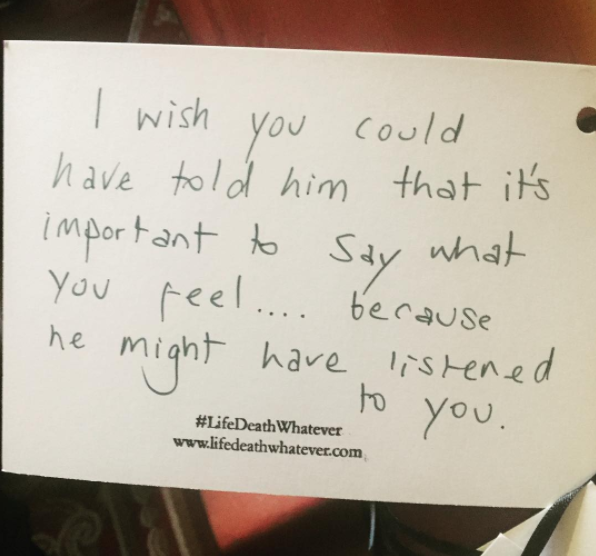 I wish you could
have told him that it's
important to say what
you feel.... because
he might have listened
to you.
#LifeDeathWhatever
www.lifedeathwhatever.com